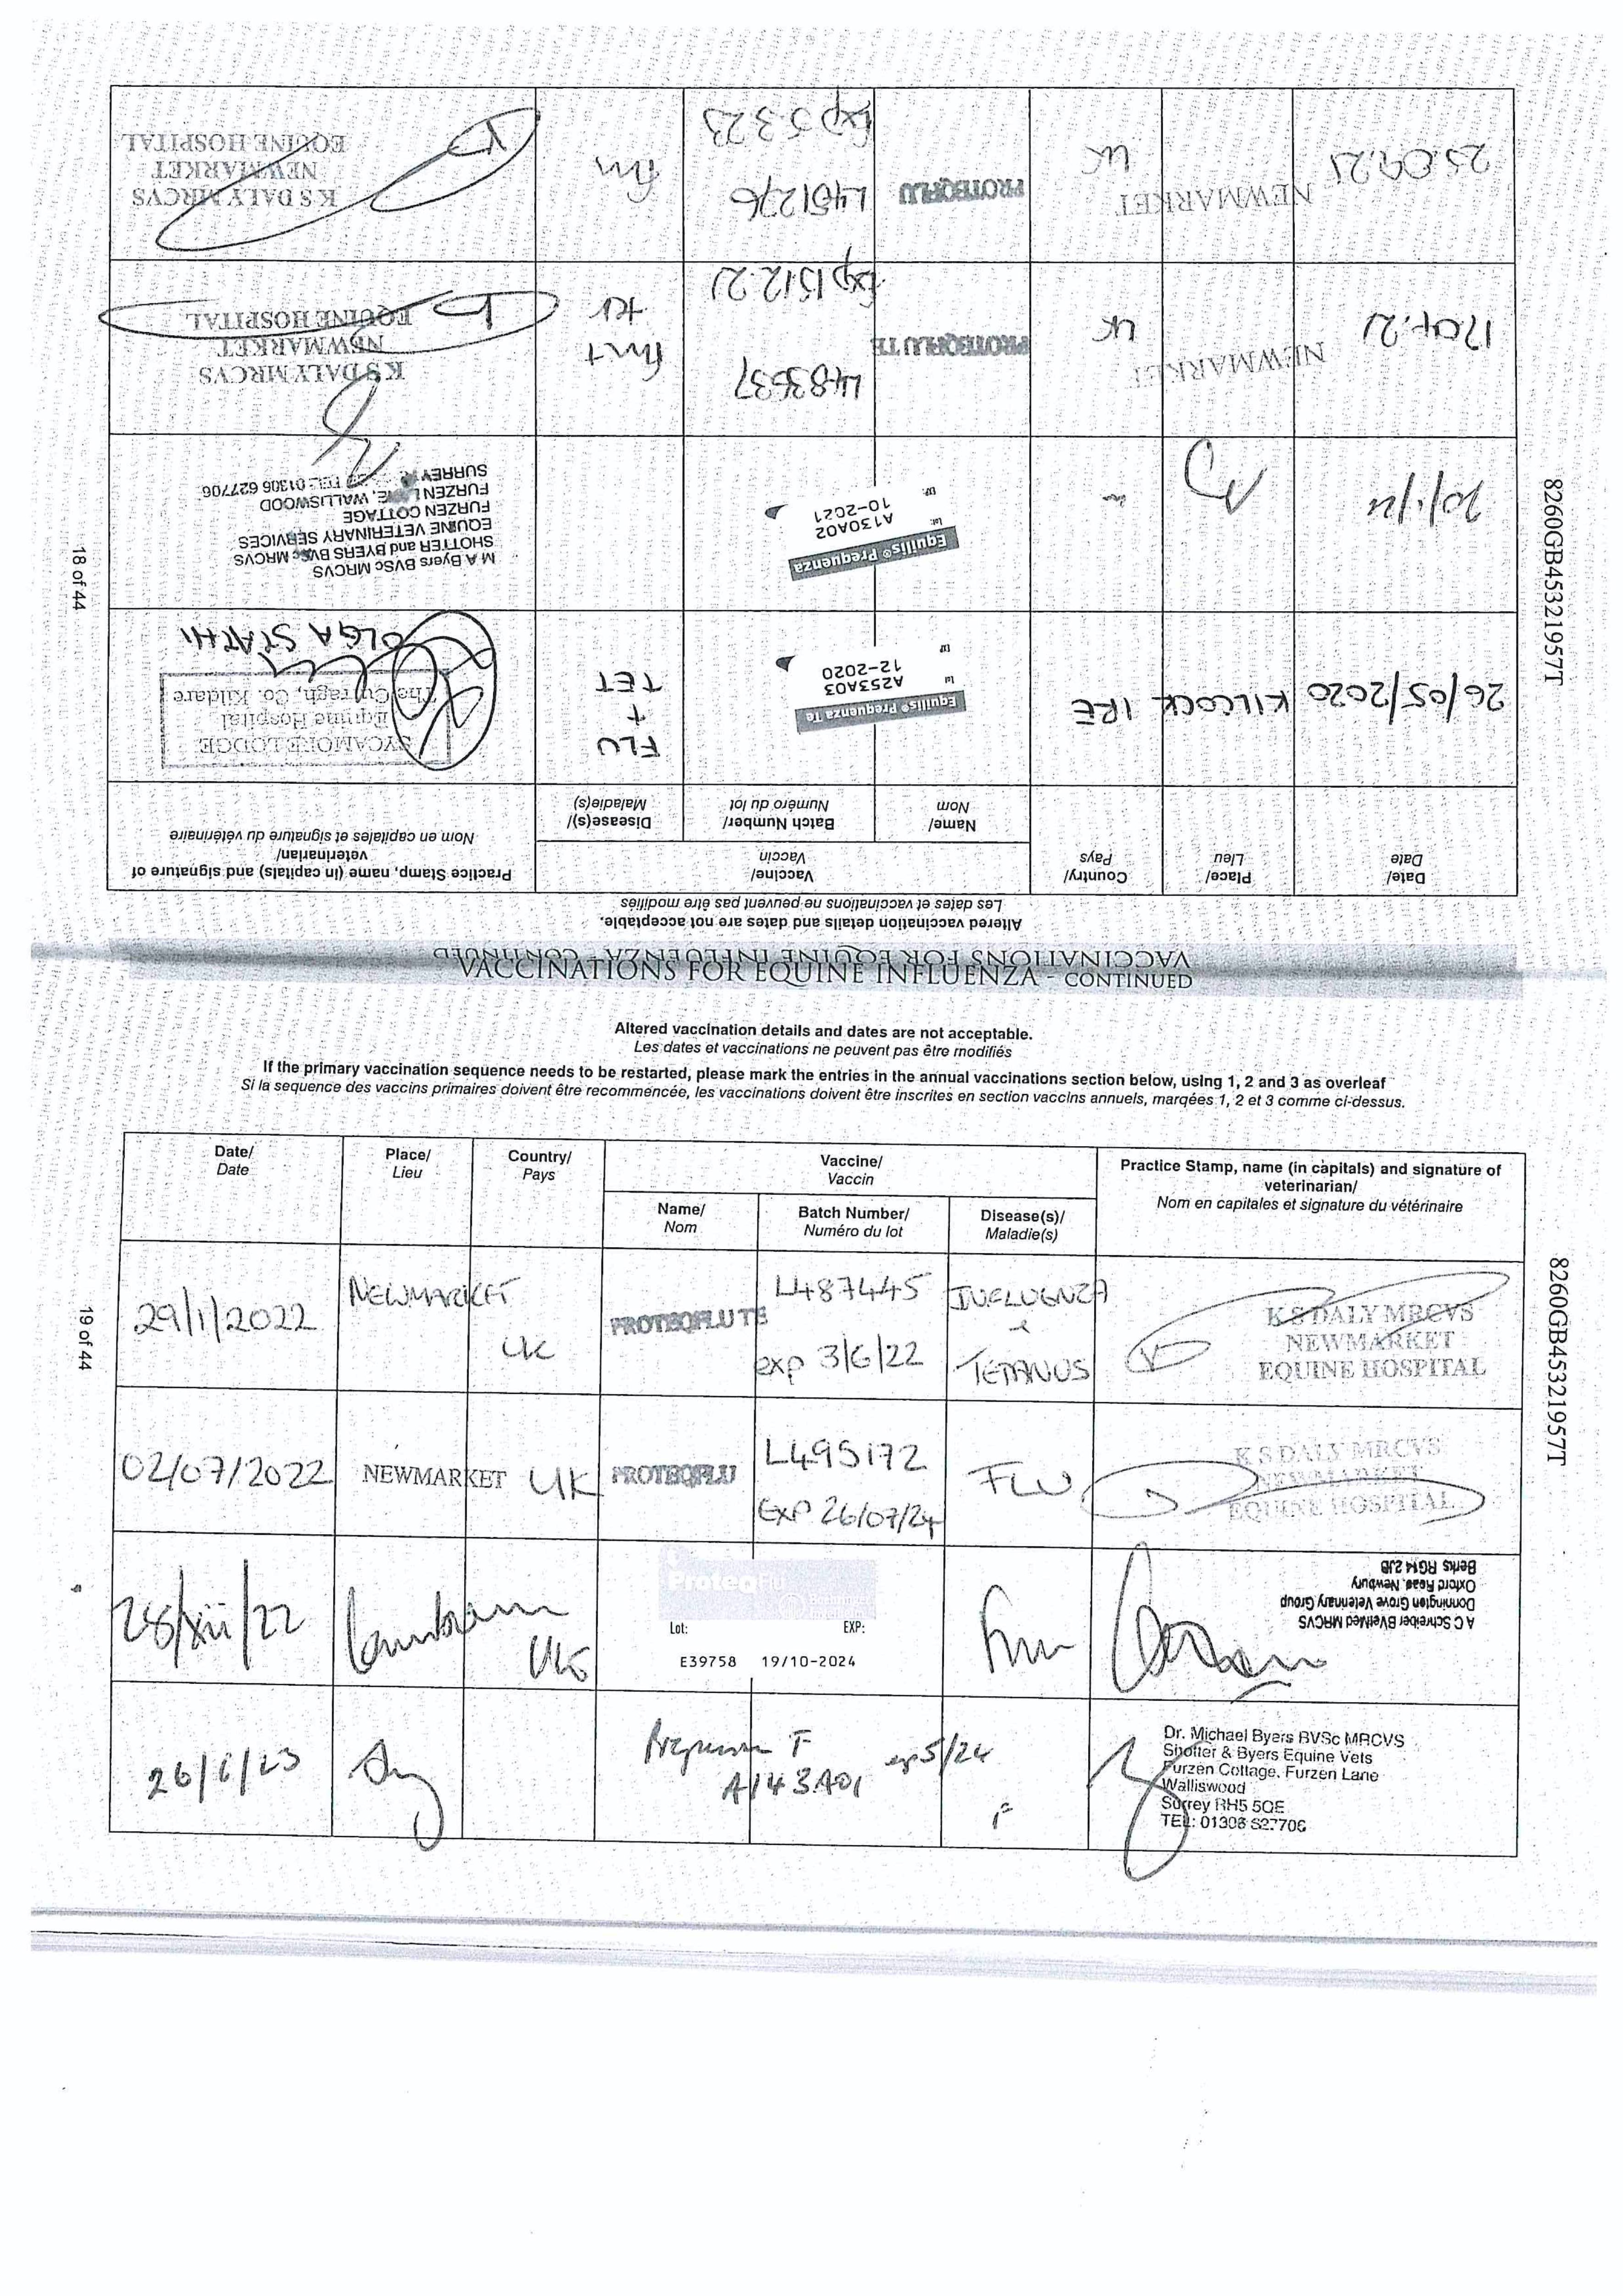 VACCINATIONS FOR EQUINE INFLUENZA - CONTINUED
Altered vaccination details and dates are not acceptable.
Les dates et vaccinations ne peuvent pas être modifiés
Date/
Date
Place/
Lieu
Country/
Pays
Vaccine/
Vaccin
Name/
Nom
Batch Number/
Numéro du lot
Disease(s)/
Maladie(s)
Practice Stamp, name (in capitals) and signature of
veterinarian/
Nom en capitales et signature du vétérinaire
26/05/2020
KILCOCK
IRE
Equilis® Prequenza Te
Lot
A253A03
12-2020
EXP
FLU
+
TET
SYCAMORE LODGE
Equine Hospital
The Curragh, Co. Kildare
OLGA STATHI
Equilis® Prequenza
Lot:
A130A02
10-2021
EXP.
M A Byers BVSc MRCVS
SHOTTER and BYERS BVSc MRCVS
EQUINE VETERINARY SERVICES
FURZEN COTTAGE
FURZEN LANE, WALLISWOOD
SURREY TEL: 01306 627706
NEWMARKET
UK
PROTEQFLU TE
L483537
Exp 15.12.21
K S DALY MRCVS
NEWMARKET
EQUINE HOSPITAL
NEWMARKET
UK
PROTEQFLU
Exp 5.3.23
K S DALY MRCVS
NEWMARKET
EQUINE HOSPITAL
18 of 44
8260GB45321957T
VACCINATIONS FOR EQUINE INFLUENZA - CONTINUED
Altered vaccination details and dates are not acceptable.
Les dates et vaccinations ne peuvent pas être modifiés
If the primary vaccination sequence needs to be restarted, please mark the entries in the annual vaccinations section below, using 1, 2 and 3 as overleaf
Si la sequence des vaccins primaires doivent être recommencée, les vaccinations doivent être inscrites en section vaccins annuels, marqées 1, 2 et 3 comme ci-dessus.
Date/
Date
Place/
Lieu
Country/
Pays
Vaccine/
Vaccin
Name/
Nom
Batch Number/
Numéro du lot
Disease(s)/
Maladie(s)
Practice Stamp, name (in capitals) and signature of
veterinarian/
Nom en capitales et signature du vétérinaire
29/1/2022
NEWMARKET
UK
PROTEQFLU TE
L487445
exp 3/6/22
INFLUENZA
&
TETANUS
K S DALY MRCVS
NEWMARKET
EQUINE HOSPITAL
02/07/2022
NEWMARKET
UK
PROTEQFLU
L495172
EXP 26/07/24
FLU
K S DALY MRCVS
NEWMARKET
EQUINE HOSPITAL
28/xii/22
Lambourn
UK
ProteqFlu
Lot: EXP:
E39758 19/10-2024
Flu
A C Schreiber BVetMed MRCVS
Donnington Grove Veterinary Group
Oxford Road, Newbury
Berks RG14 2JB
26/6/23
A143A01
exp 5/24
F
Dr. Michael Byers BVSc MRCVS
Shotter & Byers Equine Vets
Furzen Cottage, Furzen Lane
Walliswood
Surrey RH5 5QE
TEL: 01306 627706
19 of 44
8260GB45321957T